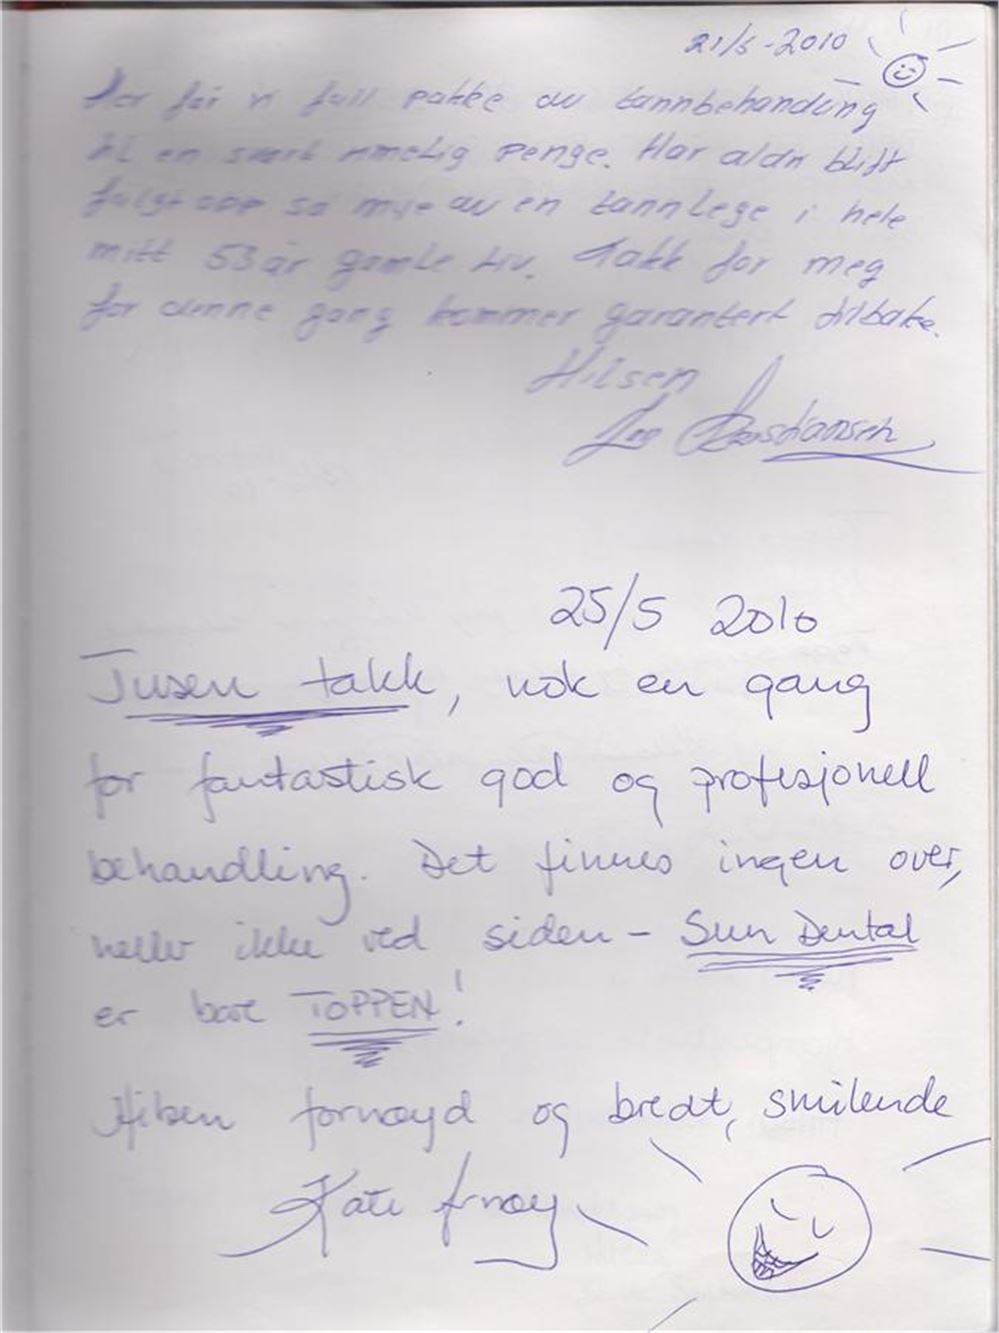 21/5-2010
Her får vi full pakke av tannbehandling
til en svært rimelig penge. Har aldri blitt
fulgt opp så mye av en tannlege i hele
mitt 53 år gamle liv. Takk for meg
for denne gang kommer garantert tilbake.
Hilsen
25/5 2010
Tusen takk, nok en gang
for fantastisk god og profesjonell
behandling. Det finnes ingen over,
heller ikke ved siden - Sun Dental
er bare TOPPEN!
Hilsen fornøyd og bredt, smilende
Kate